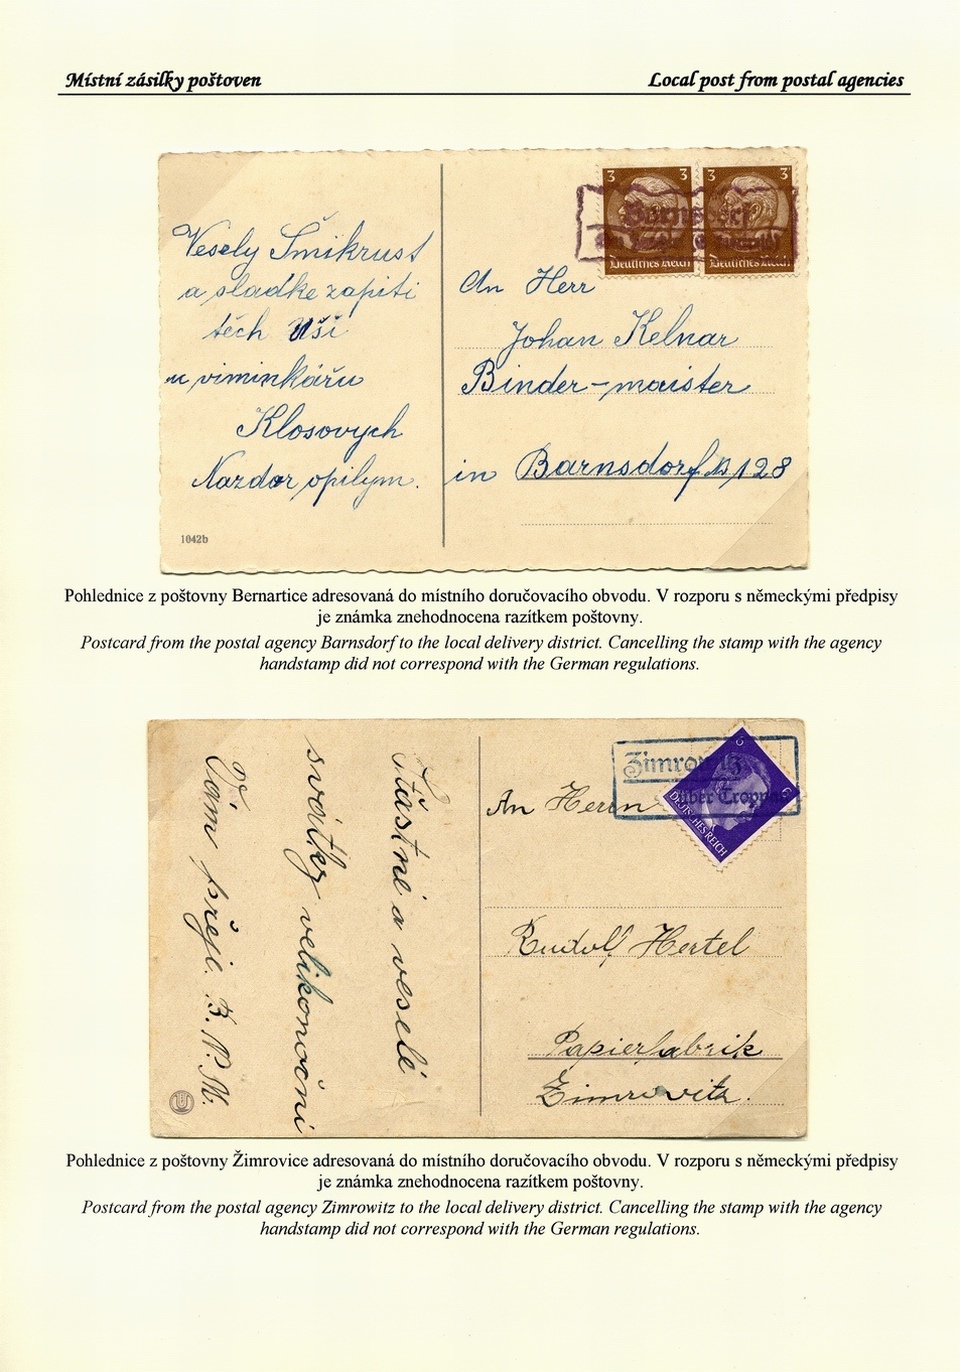 Místní zásilky poštoven
Local post from postal agencies
3 3 3 3
Barnsdorf
Deutsches Reich Deutsches Reich
Vesely Šmikrust
a sladke zapiti
těch Uší
u viminkářu
Klosovych
Nazdar opilym.
1042b
An Herr
Johan Kelnar
Binder-maister
in Barnsdorf 128
Pohlednice z poštovny Bernartice adresovaná do místního doručovacího obvodu. V rozporu s německými předpisy
je známka znehodnocena razítkem poštovny.
Postcard from the postal agency Barnsdorf to the local delivery district. Cancelling the stamp with the agency
handstamp did not correspond with the German regulations.
Šťastné a veselé
svátky velikonoční
Vám přeje. B. N. M.
Zimrowitz
über Troppau
6 6
DEUTSCHES REICH
An Herrn
Rudolf Hertel
Papierfabrik
Zimrovitz.
Pohlednice z poštovny Žimrovice adresovaná do místního doručovacího obvodu. V rozporu s německými předpisy
je známka znehodnocena razítkem poštovny.
Postcard from the postal agency Zimrowitz to the local delivery district. Cancelling the stamp with the agency
handstamp did not correspond with the German regulations.